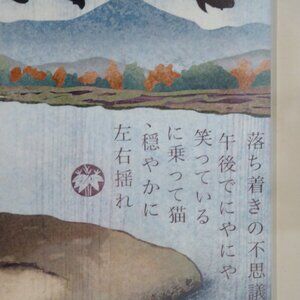 落ち着きの不思議
午後でにやにや
笑っている
に乗って猫
、穏やかに
左右揺れ